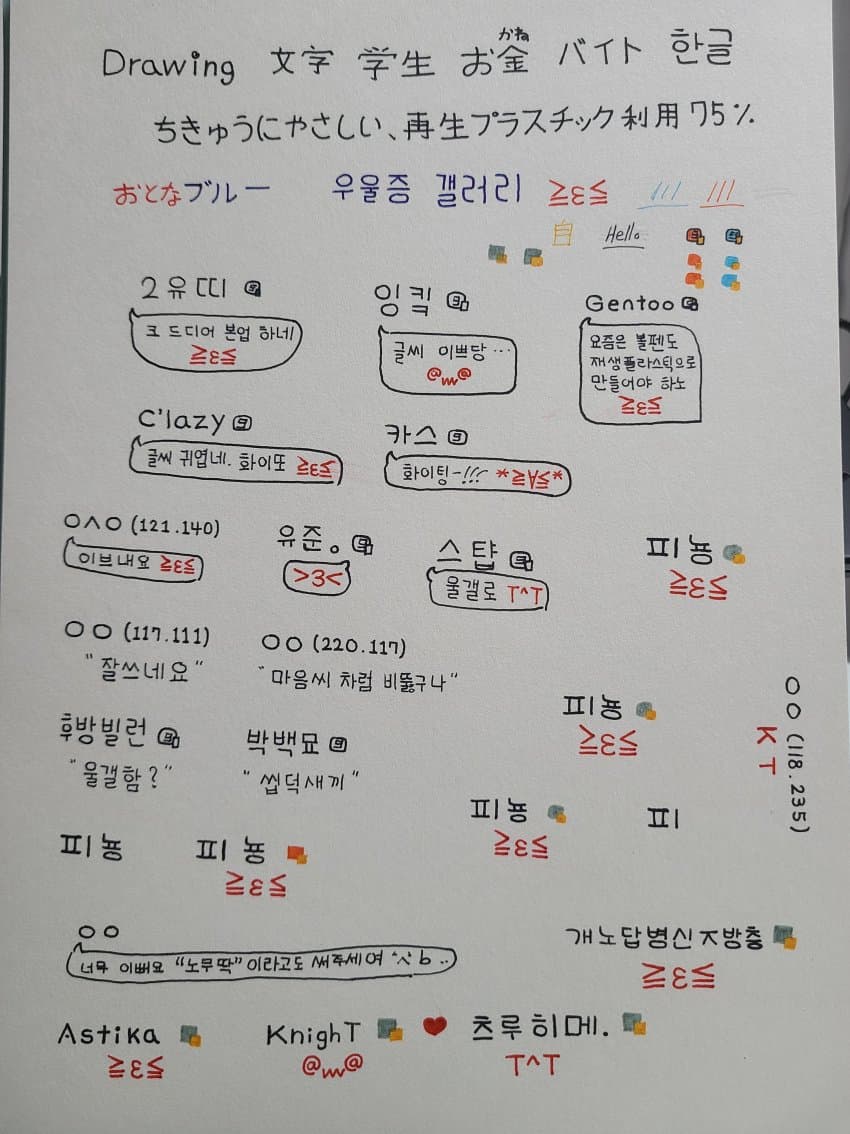 Drawing 文字 学生 お金 バイト 한글
かね
ちきゅうにやさしい、再生プラスチック利用75%
おとなブルー 우울증 갤러리 ≧ε≦ /// ///
自 Hello。
2유띠
크 드디어 본업 하네!
≧3≦
잉킥
글씨 이쁘당…
@m@
Gentoo
요즘은 볼펜도
재생플라스틱으로
만들어야 하노
≧3≦
C'lazy
글씨 귀엽네. 화이또 ≧3≦
카스
화이팅~!!! *≧∀≦*
ㅇㅅㅇ (121.140)
이브내요 ≧3≦
유준。
>3<
스턉
울갤로 T^T
피뇽
≧3≦
ㅇㅇ (117.111)
"잘쓰네요"
ㅇㅇ (220.117)
"마음씨 차럼 비뚫구나"
피뇽
≧3≦
ㅇㅇ (118.235)
KT
후방빌런
"울갤함?"
박백묘
"씹덕새끼"
피뇽
≧ε≦
피
피뇽
피뇽
≧ε≦
ㅇㅇ
너무 이뻐요 "노무딱"이라고도 써주세여
개노답병신ㅈ방충
≧ε≦
Astika
≧ε≦
KnighT
@m@
츠루히메.
T^T